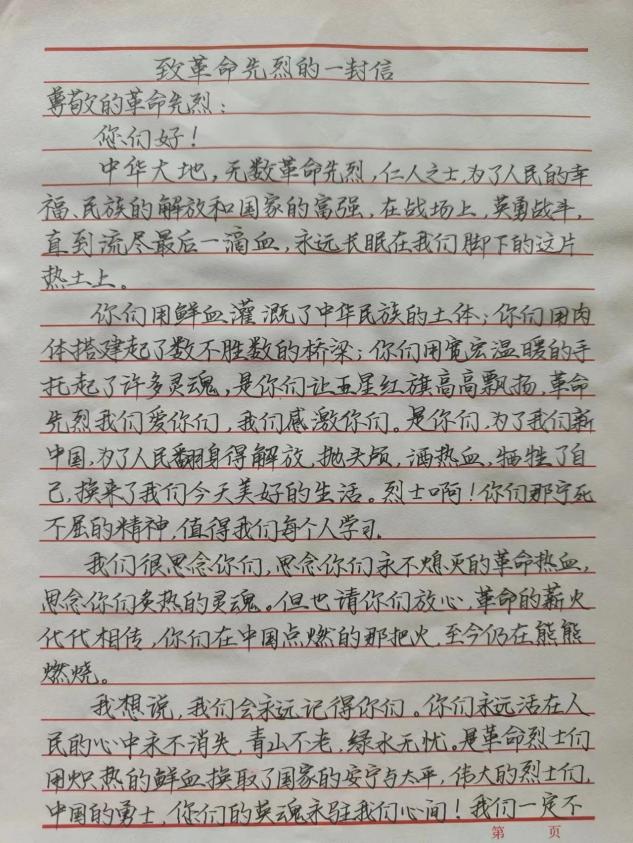 致革命先烈的一封信
尊敬的革命先烈：
你们好！
中华大地，无数革命先烈，仁人之士，为了人民的幸
福、民族的解放和国家的富强，在战场上，英勇战斗，
直到流尽最后一滴血，永远长眠在我们脚下的这片
热土上。
你们用鲜血灌溉了中华民族的土体；你们用肉
体搭建起了数不胜数的桥梁；你们用宽宏温暖的手
托起了许多灵魂，是你们让五星红旗高高飘扬，革命
先烈我们爱你们，我们感激你们。是你们，为了我们新
中国，为了人民翻身得解放，抛头颅，洒热血，牺牲了自
己，换来了我们今天美好的生活。烈士啊！你们那宁死
不屈的精神，值得我们每个人学习.
我们很思念你们，思念你们永不熄灭的革命热血，
思念你们炙热的灵魂。但也请你们放心，革命的薪火
代代相传，你们在中国点燃的那把火，至今仍在熊熊
燃烧。
我想说，我们会永远记得你们。你们永远活在人
民的心中永不消失，青山不老，绿水无忧。是革命烈士们
用炽热的鲜血换取了国家的安宁与太平，伟大的烈士们，
中国的勇士，你们的英魂永驻我们心间！我们一定不
第 页